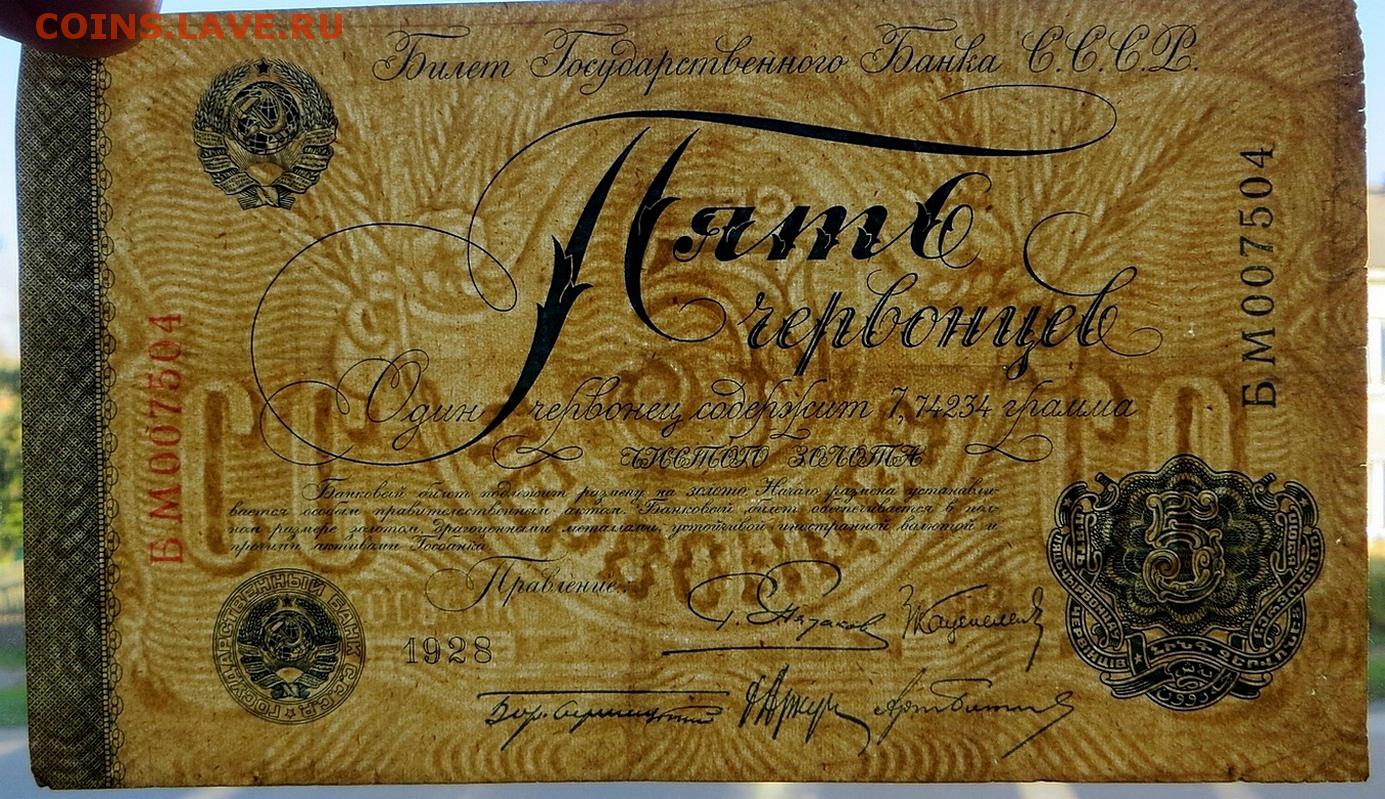 COINS.LAVE.RU
Билет Государственного Банка С.С.С.Р.
Пять
червонцев
БМ007504
БМ007504
Один червонец содержит 7,74234 грамма
ЧИСТОГО ЗОЛОТА
Банковый билет подлежит размену на золото. Начало размена устанавли-
вается особым правительственным актом. Банковый билет обеспечивается в пол-
ном размере золотом, драгоценными металлами, устойчивой иностранной валютой и
прочими активами Госбанка
Правление:
1928
ГОСУДАРСТВЕННЫЙ БАНК С.С.С.Р.
5
ПЯТЬ ЧЕРВОНЦЕВ